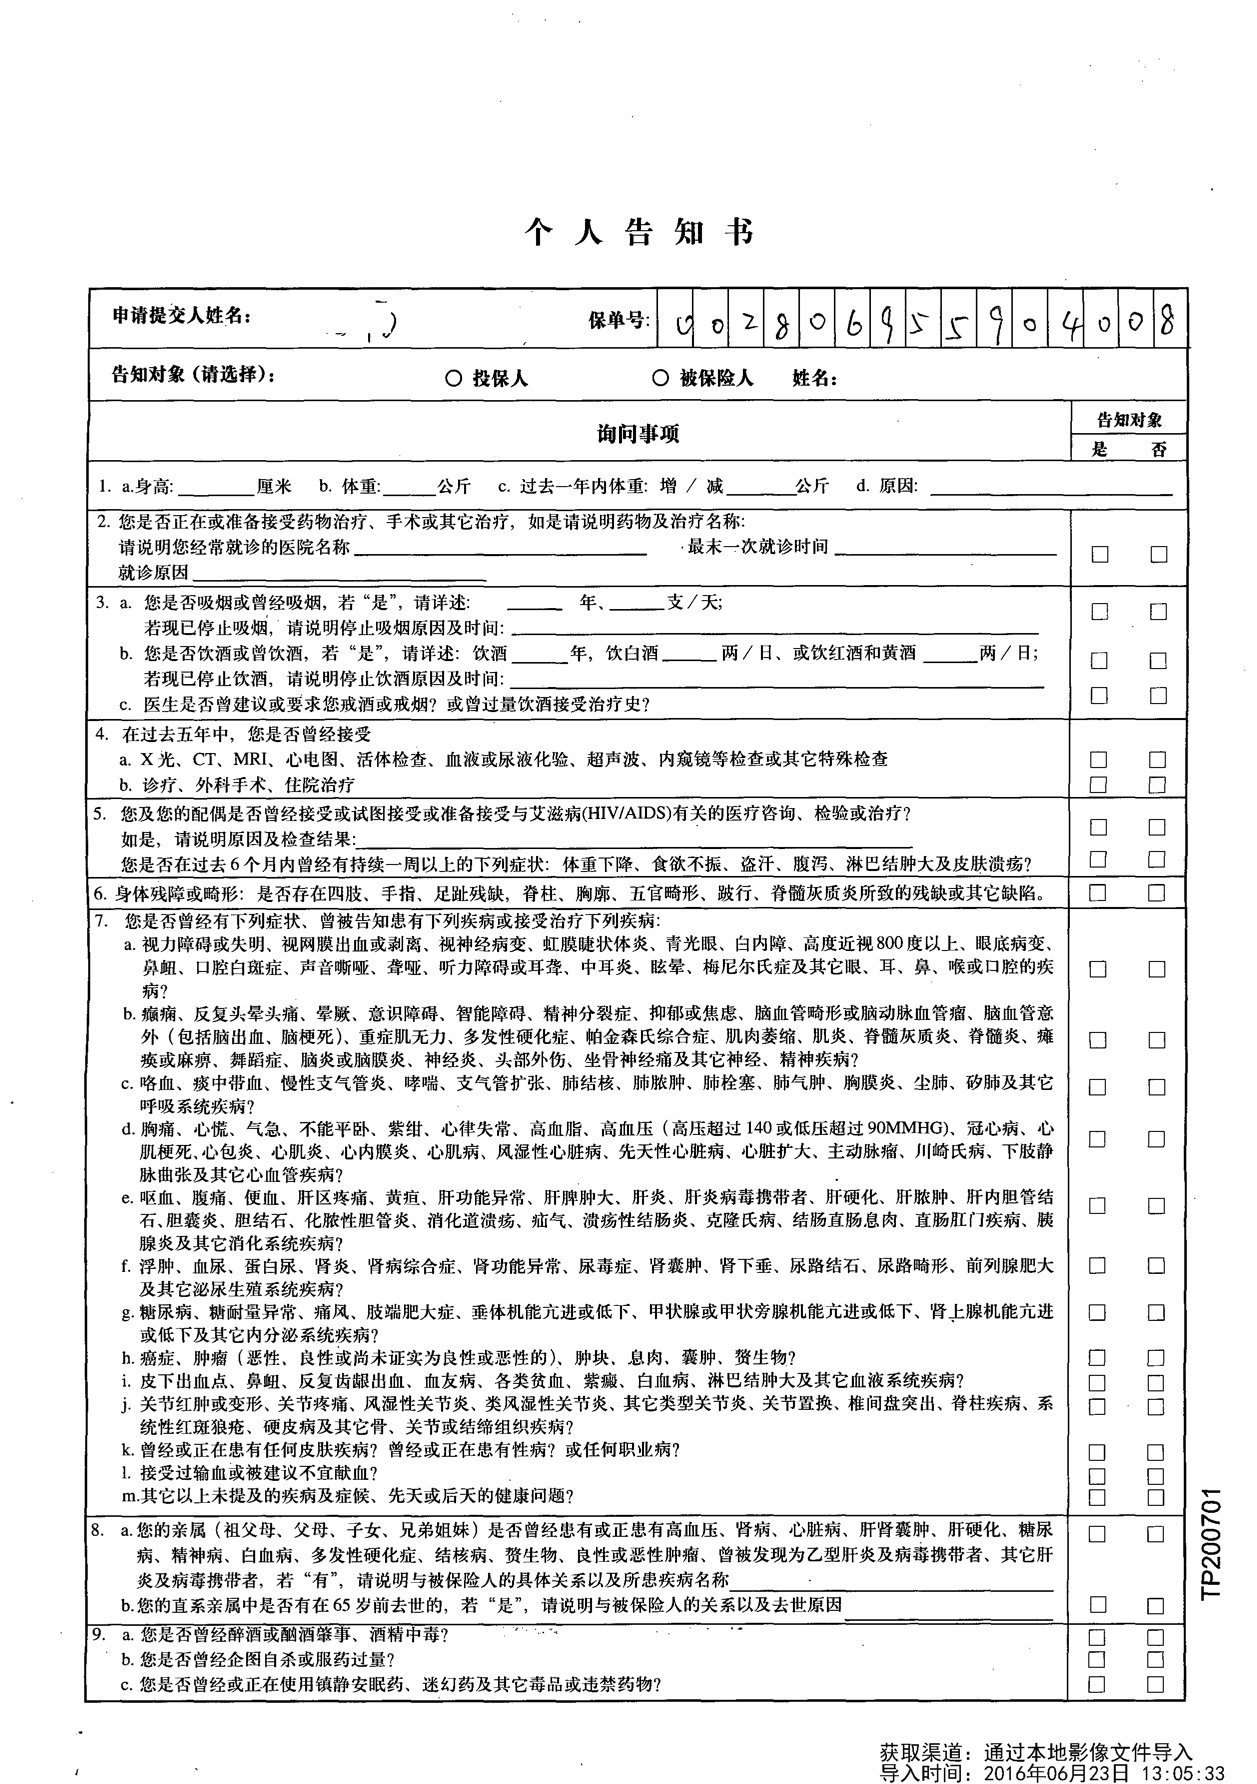 个人告知书
申请提交人姓名： 保单号: 002806955904008
告知对象（请选择）： ○ 投保人 ○ 被保险人 姓名：
询问事项 告知对象
是 否
1. a.身高:________厘米 b. 体重:______公斤 c. 过去一年内体重: 增 / 减________公斤 d. 原因: ________
2. 您是否正在或准备接受药物治疗、手术或其它治疗，如是请说明药物及治疗名称:
请说明您经常就诊的医院名称________ 最末一次就诊时间________ □ □
就诊原因________
3. a. 您是否吸烟或曾经吸烟，若“是”，请详述: ______ 年、______支/天; □ □
若现已停止吸烟，请说明停止吸烟原因及时间:________
b. 您是否饮酒或曾饮酒，若“是”，请详述: 饮酒______年，饮白酒______两/日、或饮红酒和黄酒______两/日; □ □
若现已停止饮酒，请说明停止饮酒原因及时间:________
c. 医生是否曾建议或要求您戒酒或戒烟？或曾过量饮酒接受治疗史？ □ □
4. 在过去五年中，您是否曾经接受
a. X光、CT、MRI、心电图、活体检查、血液或尿液化验、超声波、内窥镜等检查或其它特殊检查 □ □
b. 诊疗、外科手术、住院治疗 □ □
5. 您及您的配偶是否曾经接受或试图接受或准备接受与艾滋病(HIV/AIDS)有关的医疗咨询、检验或治疗？ □ □
如是，请说明原因及检查结果:________
您是否在过去6个月内曾经有持续一周以上的下列症状: 体重下降、食欲不振、盗汗、腹泻、淋巴结肿大及皮肤溃疡？ □ □
6. 身体残障或畸形: 是否存在四肢、手指、足趾残缺，脊柱、胸廓、五官畸形、跛行、脊髓灰质炎所致的残缺或其它缺陷。 □ □
7. 您是否曾经有下列症状、曾被告知患有下列疾病或接受治疗下列疾病:
a. 视力障碍或失明、视网膜出血或剥离、视神经病变、虹膜睫状体炎、青光眼、白内障、高度近视800度以上、眼底病变、
鼻衄、口腔白斑症、声音嘶哑、聋哑、听力障碍或耳聋、中耳炎、眩晕、梅尼尔氏症及其它眼、耳、鼻、喉或口腔的疾 □ □
病？
b. 癫痫、反复头晕头痛、晕厥、意识障碍、智能障碍、精神分裂症、抑郁或焦虑、脑血管畸形或脑动脉血管瘤、脑血管意
外（包括脑出血、脑梗死）、重症肌无力、多发性硬化症、帕金森氏综合症、肌肉萎缩、肌炎、脊髓灰质炎、脊髓炎、瘫 □ □
痪或麻痹、舞蹈症、脑炎或脑膜炎、神经炎、头部外伤、坐骨神经痛及其它神经、精神疾病？
c. 咯血、痰中带血、慢性支气管炎、哮喘、支气管扩张、肺结核、肺脓肿、肺栓塞、肺气肿、胸膜炎、尘肺、矽肺及其它 □ □
呼吸系统疾病？
d. 胸痛、心慌、气急、不能平卧、紫绀、心律失常、高血脂、高血压（高压超过140或低压超过90MMHG)、冠心病、心 □ □
肌梗死、心包炎、心肌炎、心内膜炎、心肌病、风湿性心脏病、先天性心脏病、心脏扩大、主动脉瘤、川崎氏病、下肢静
脉曲张及其它心血管疾病？
e. 呕血、腹痛、便血、肝区疼痛、黄疸、肝功能异常、肝脾肿大、肝炎、肝炎病毒携带者、肝硬化、肝脓肿、肝内胆管结 □ □
石、胆囊炎、胆结石、化脓性胆管炎、消化道溃疡、疝气、溃疡性结肠炎、克隆氏病、结肠直肠息肉、直肠肛门疾病、胰
腺炎及其它消化系统疾病？
f. 浮肿、血尿、蛋白尿、肾炎、肾病综合症、肾功能异常、尿毒症、肾囊肿、肾下垂、尿路结石、尿路畸形、前列腺肥大 □ □
及其它泌尿生殖系统疾病？
g. 糖尿病、糖耐量异常、痛风、肢端肥大症、垂体机能亢进或低下、甲状腺或甲状旁腺机能亢进或低下、肾上腺机能亢进 □ □
或低下及其它内分泌系统疾病？
h. 癌症、肿瘤（恶性、良性或尚未证实为良性或恶性的）、肿块、息肉、囊肿、赘生物？ □ □
i. 皮下出血点、鼻衄、反复齿龈出血、血友病、各类贫血、紫癜、白血病、淋巴结肿大及其它血液系统疾病？ □ □
j. 关节红肿或变形、关节疼痛、风湿性关节炎、类风湿性关节炎、其它类型关节炎、关节置换、椎间盘突出、脊柱疾病、系 □ □
统性红斑狼疮、硬皮病及其它骨、关节或结缔组织疾病？
k. 曾经或正在患有任何皮肤疾病？曾经或正在患有性病？或任何职业病？ □ □
l. 接受过输血或被建议不宜献血？ □ □
m.其它以上未提及的疾病及症候、先天或后天的健康问题？ □ □
8. a.您的亲属（祖父母、父母、子女、兄弟姐妹）是否曾经患有或正患有高血压、肾病、心脏病、肝肾囊肿、肝硬化、糖尿 □ □
病、精神病、白血病、多发性硬化症、结核病、赘生物、良性或恶性肿瘤、曾被发现为乙型肝炎及病毒携带者、其它肝
炎及病毒携带者，若“有”，请说明与被保险人的具体关系以及所患疾病名称________
b.您的直系亲属中是否有在65岁前去世的，若“是”，请说明与被保险人的关系以及去世原因________ □ □
9. a. 您是否曾经醉酒或酗酒肇事、酒精中毒？ □ □
b. 您是否曾经企图自杀或服药过量？ □ □
c. 您是否曾经或正在使用镇静安眠药、迷幻药及其它毒品或违禁药物？ □ □
TP200701
获取渠道：通过本地影像文件导入
导入时间：2016年06月23日 13:05:33